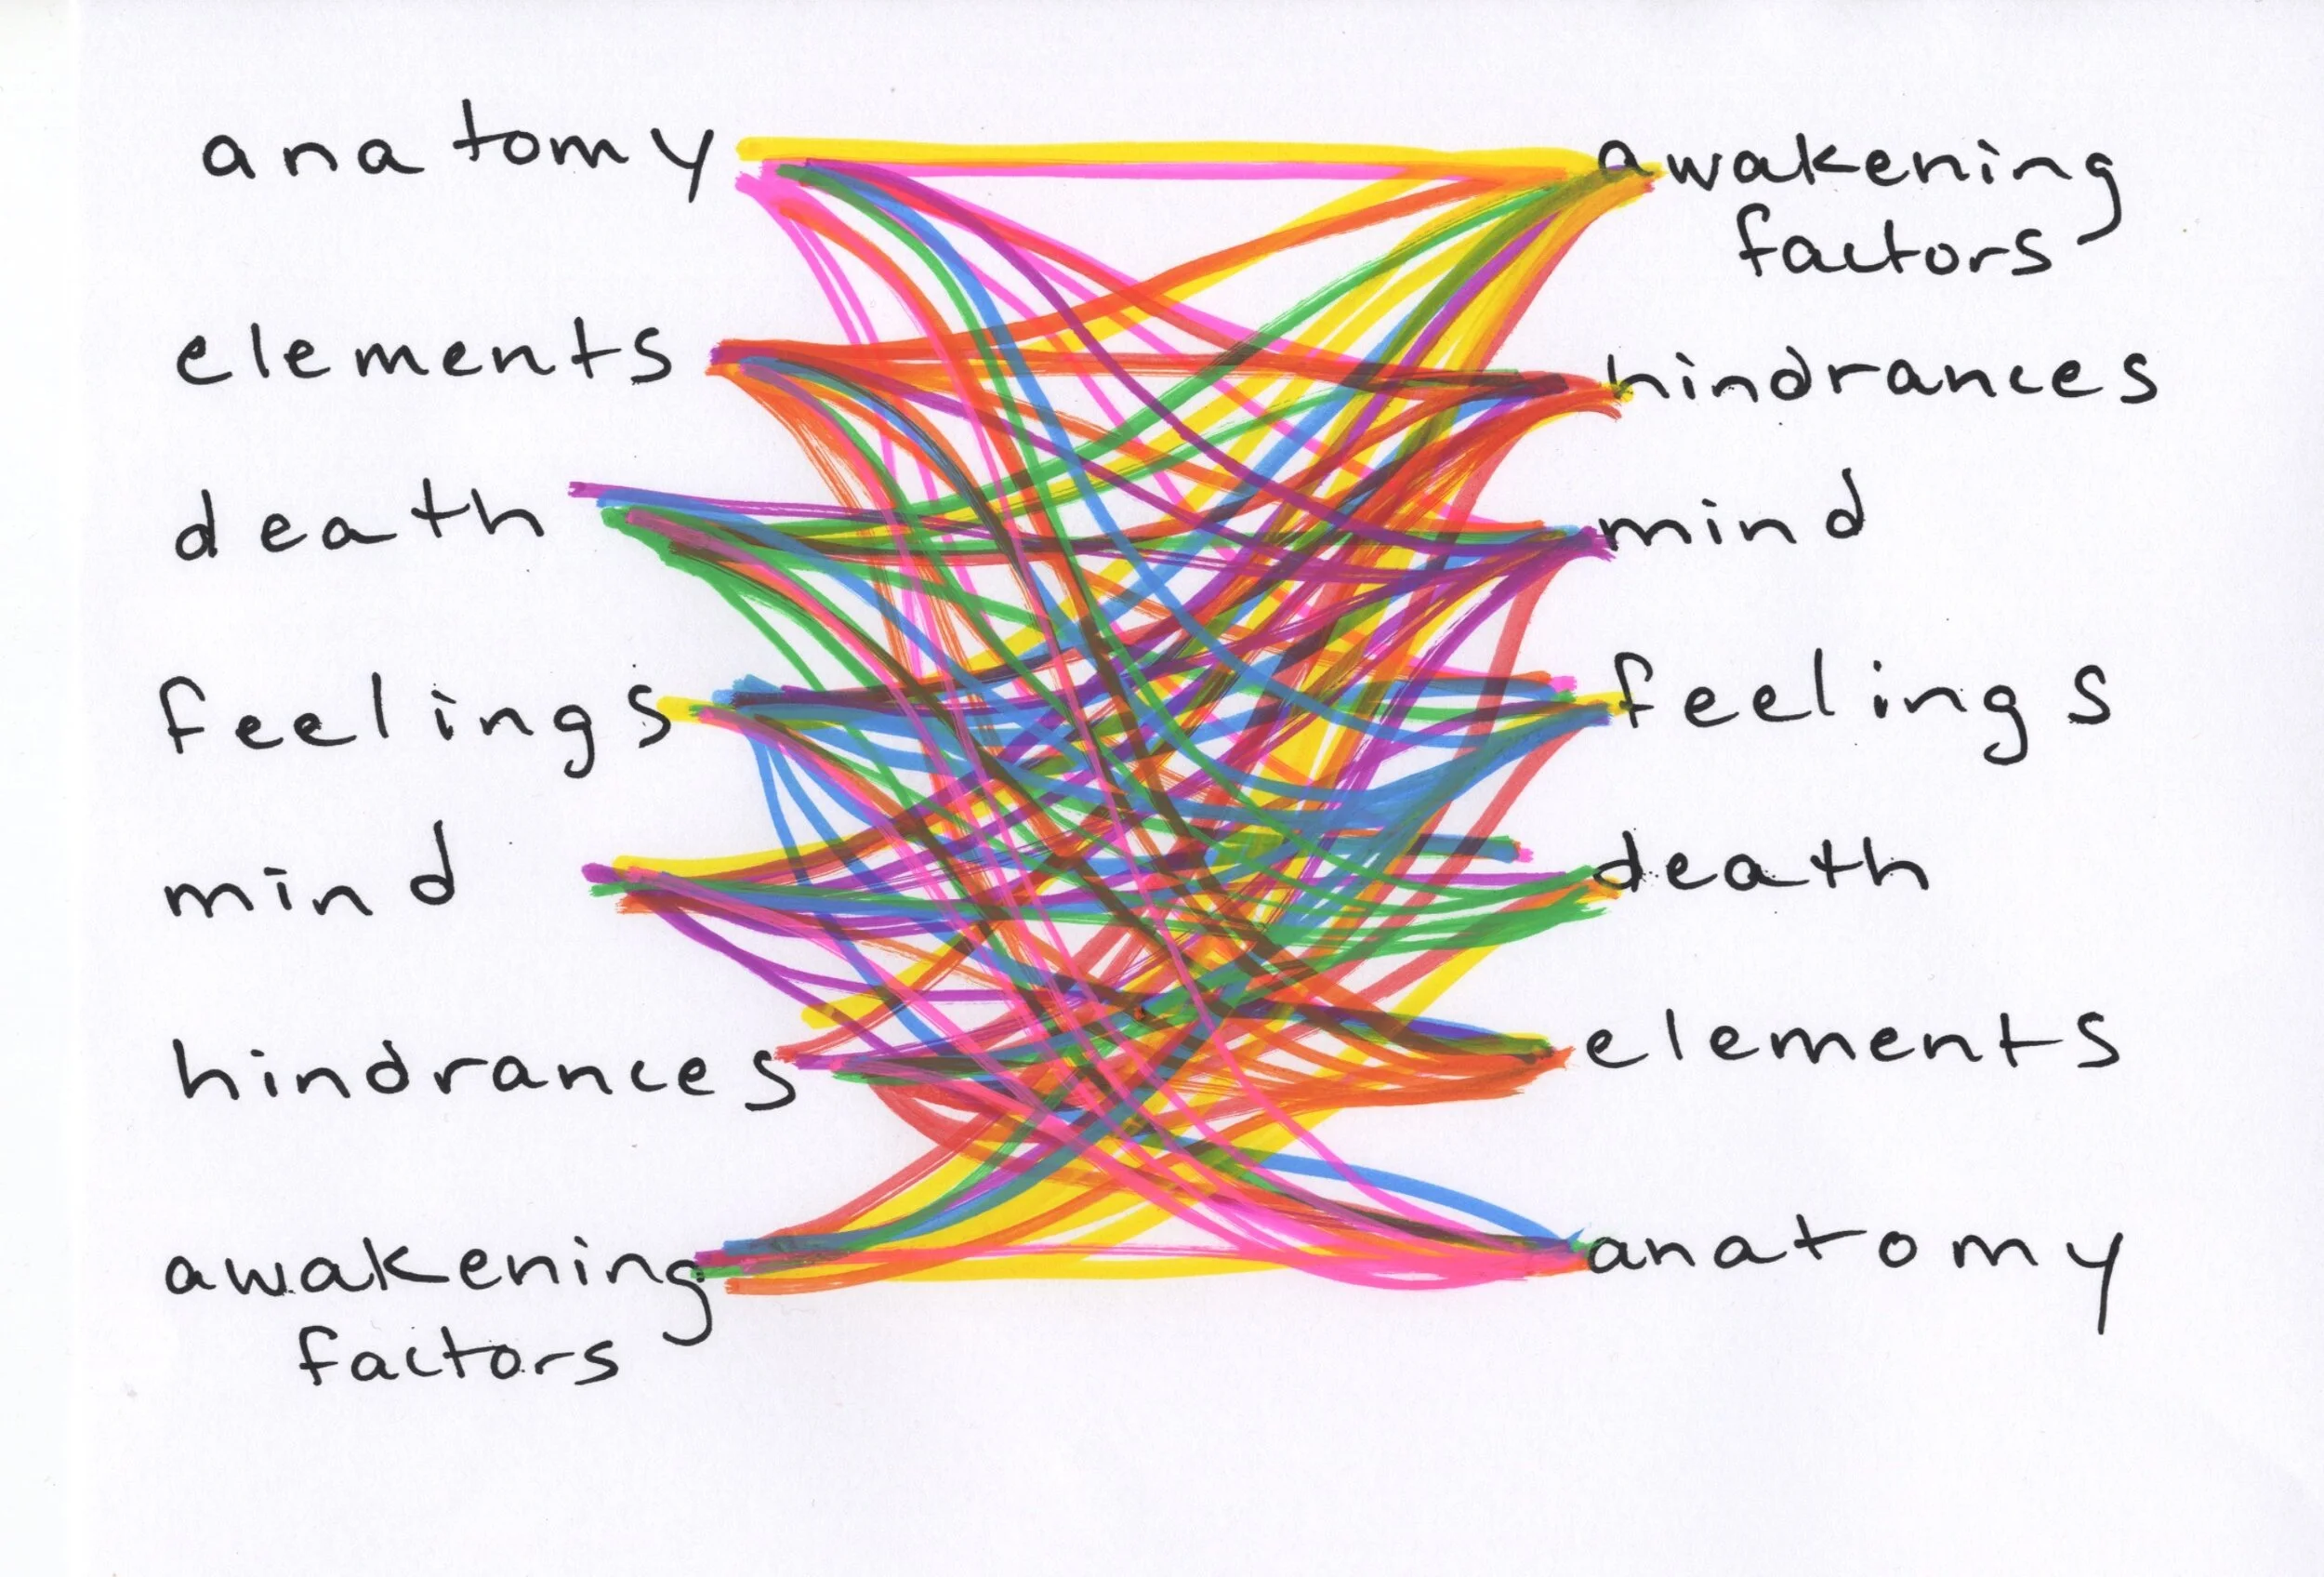 anatomy
elements
death
feelings
mind
hindrances
awakening
factors
awakening
factors
hindrances
mind
feelings
death
elements
anatomy